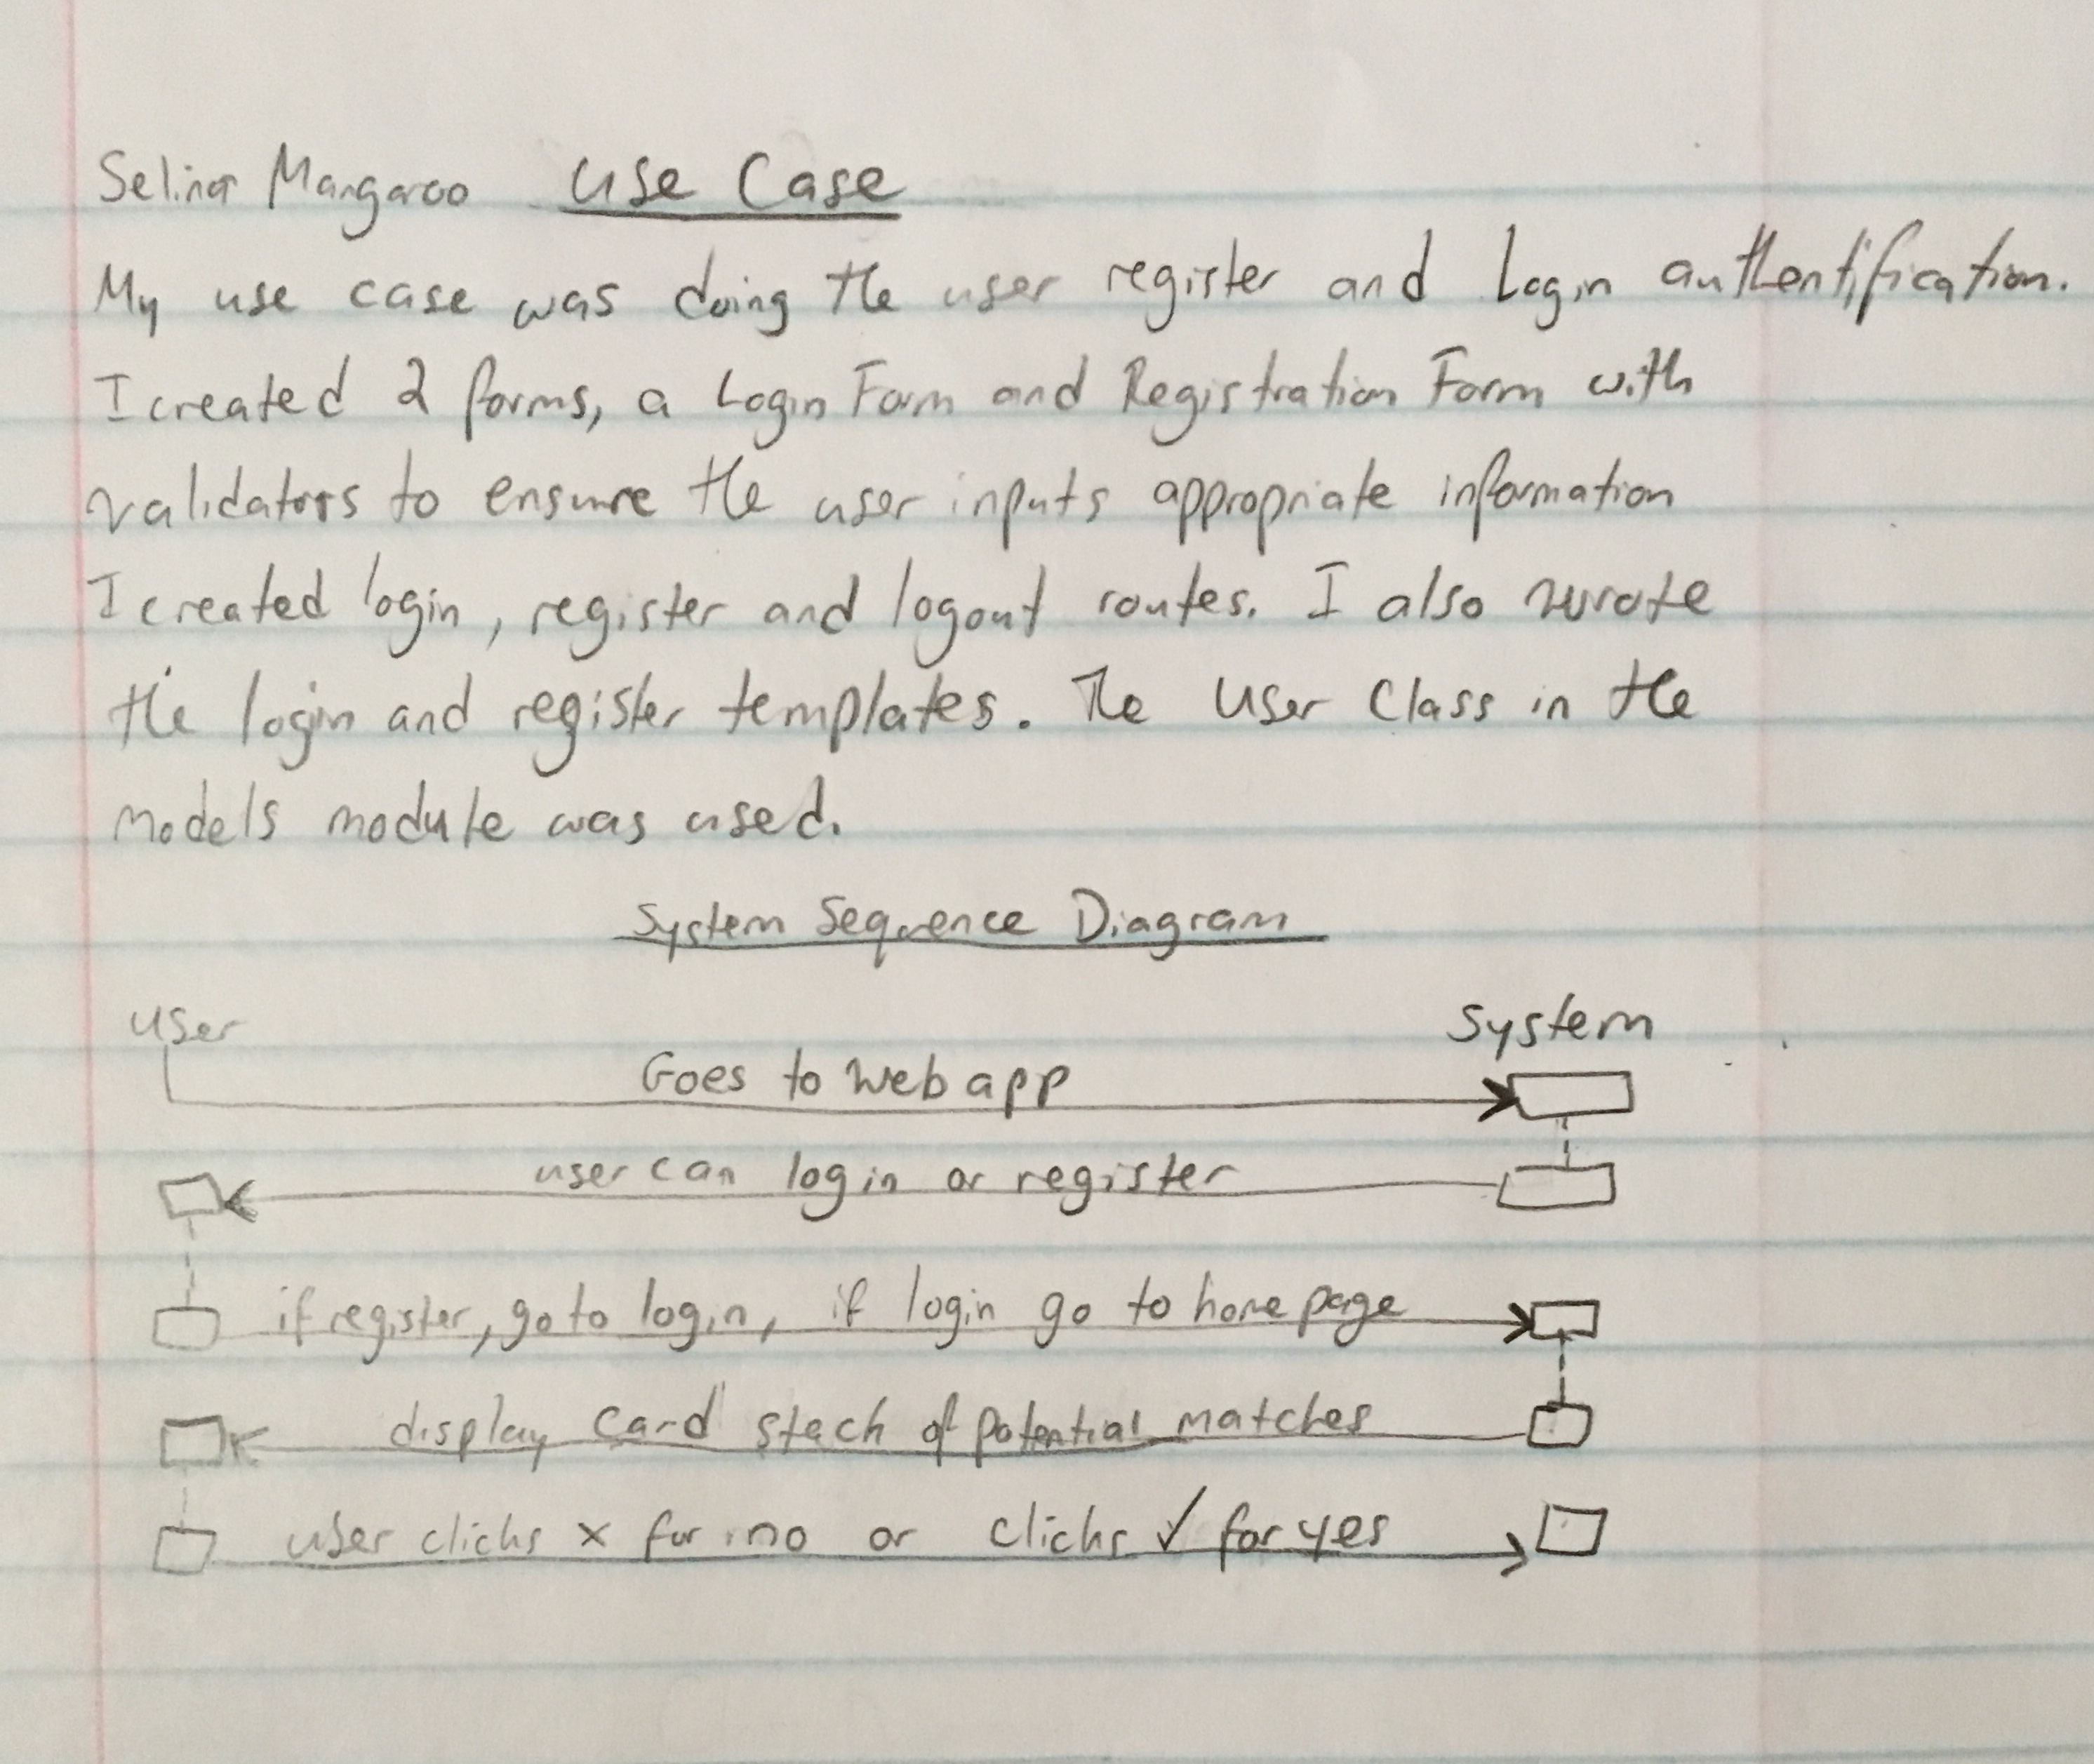 Selina Mangaroo Use Case
My use case was doing the user register and Login authentification.
I created 2 forms, a Login Form and Registration Form with
validators to ensure the user inputs appropriate information
I created login, register and logout routes. I also wrote
the login and register templates. The User Class in the
models module was used.
System Sequence Diagram
User System
Goes to web app
user can login or register
if register, go to login, if login go to home page
display card stack of potential matches
user clicks x for no or clicks ✓ for yes